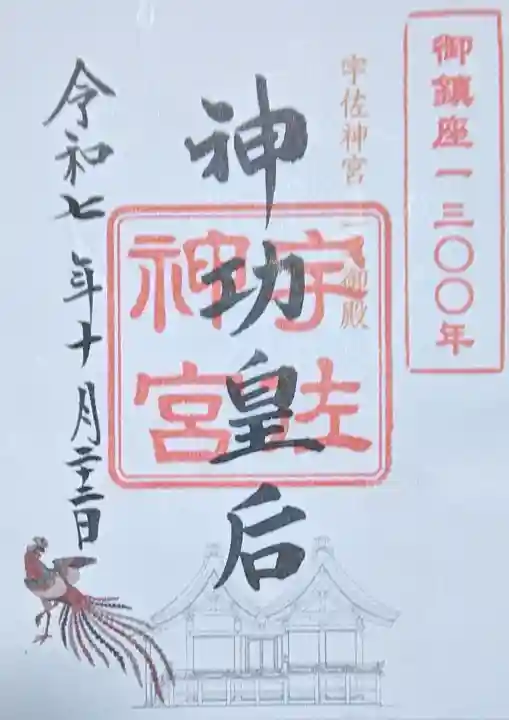 御鎮座一三〇〇年
宇佐神宮 御殿
神功皇后
宇佐神宮
令和七年十月二十二日